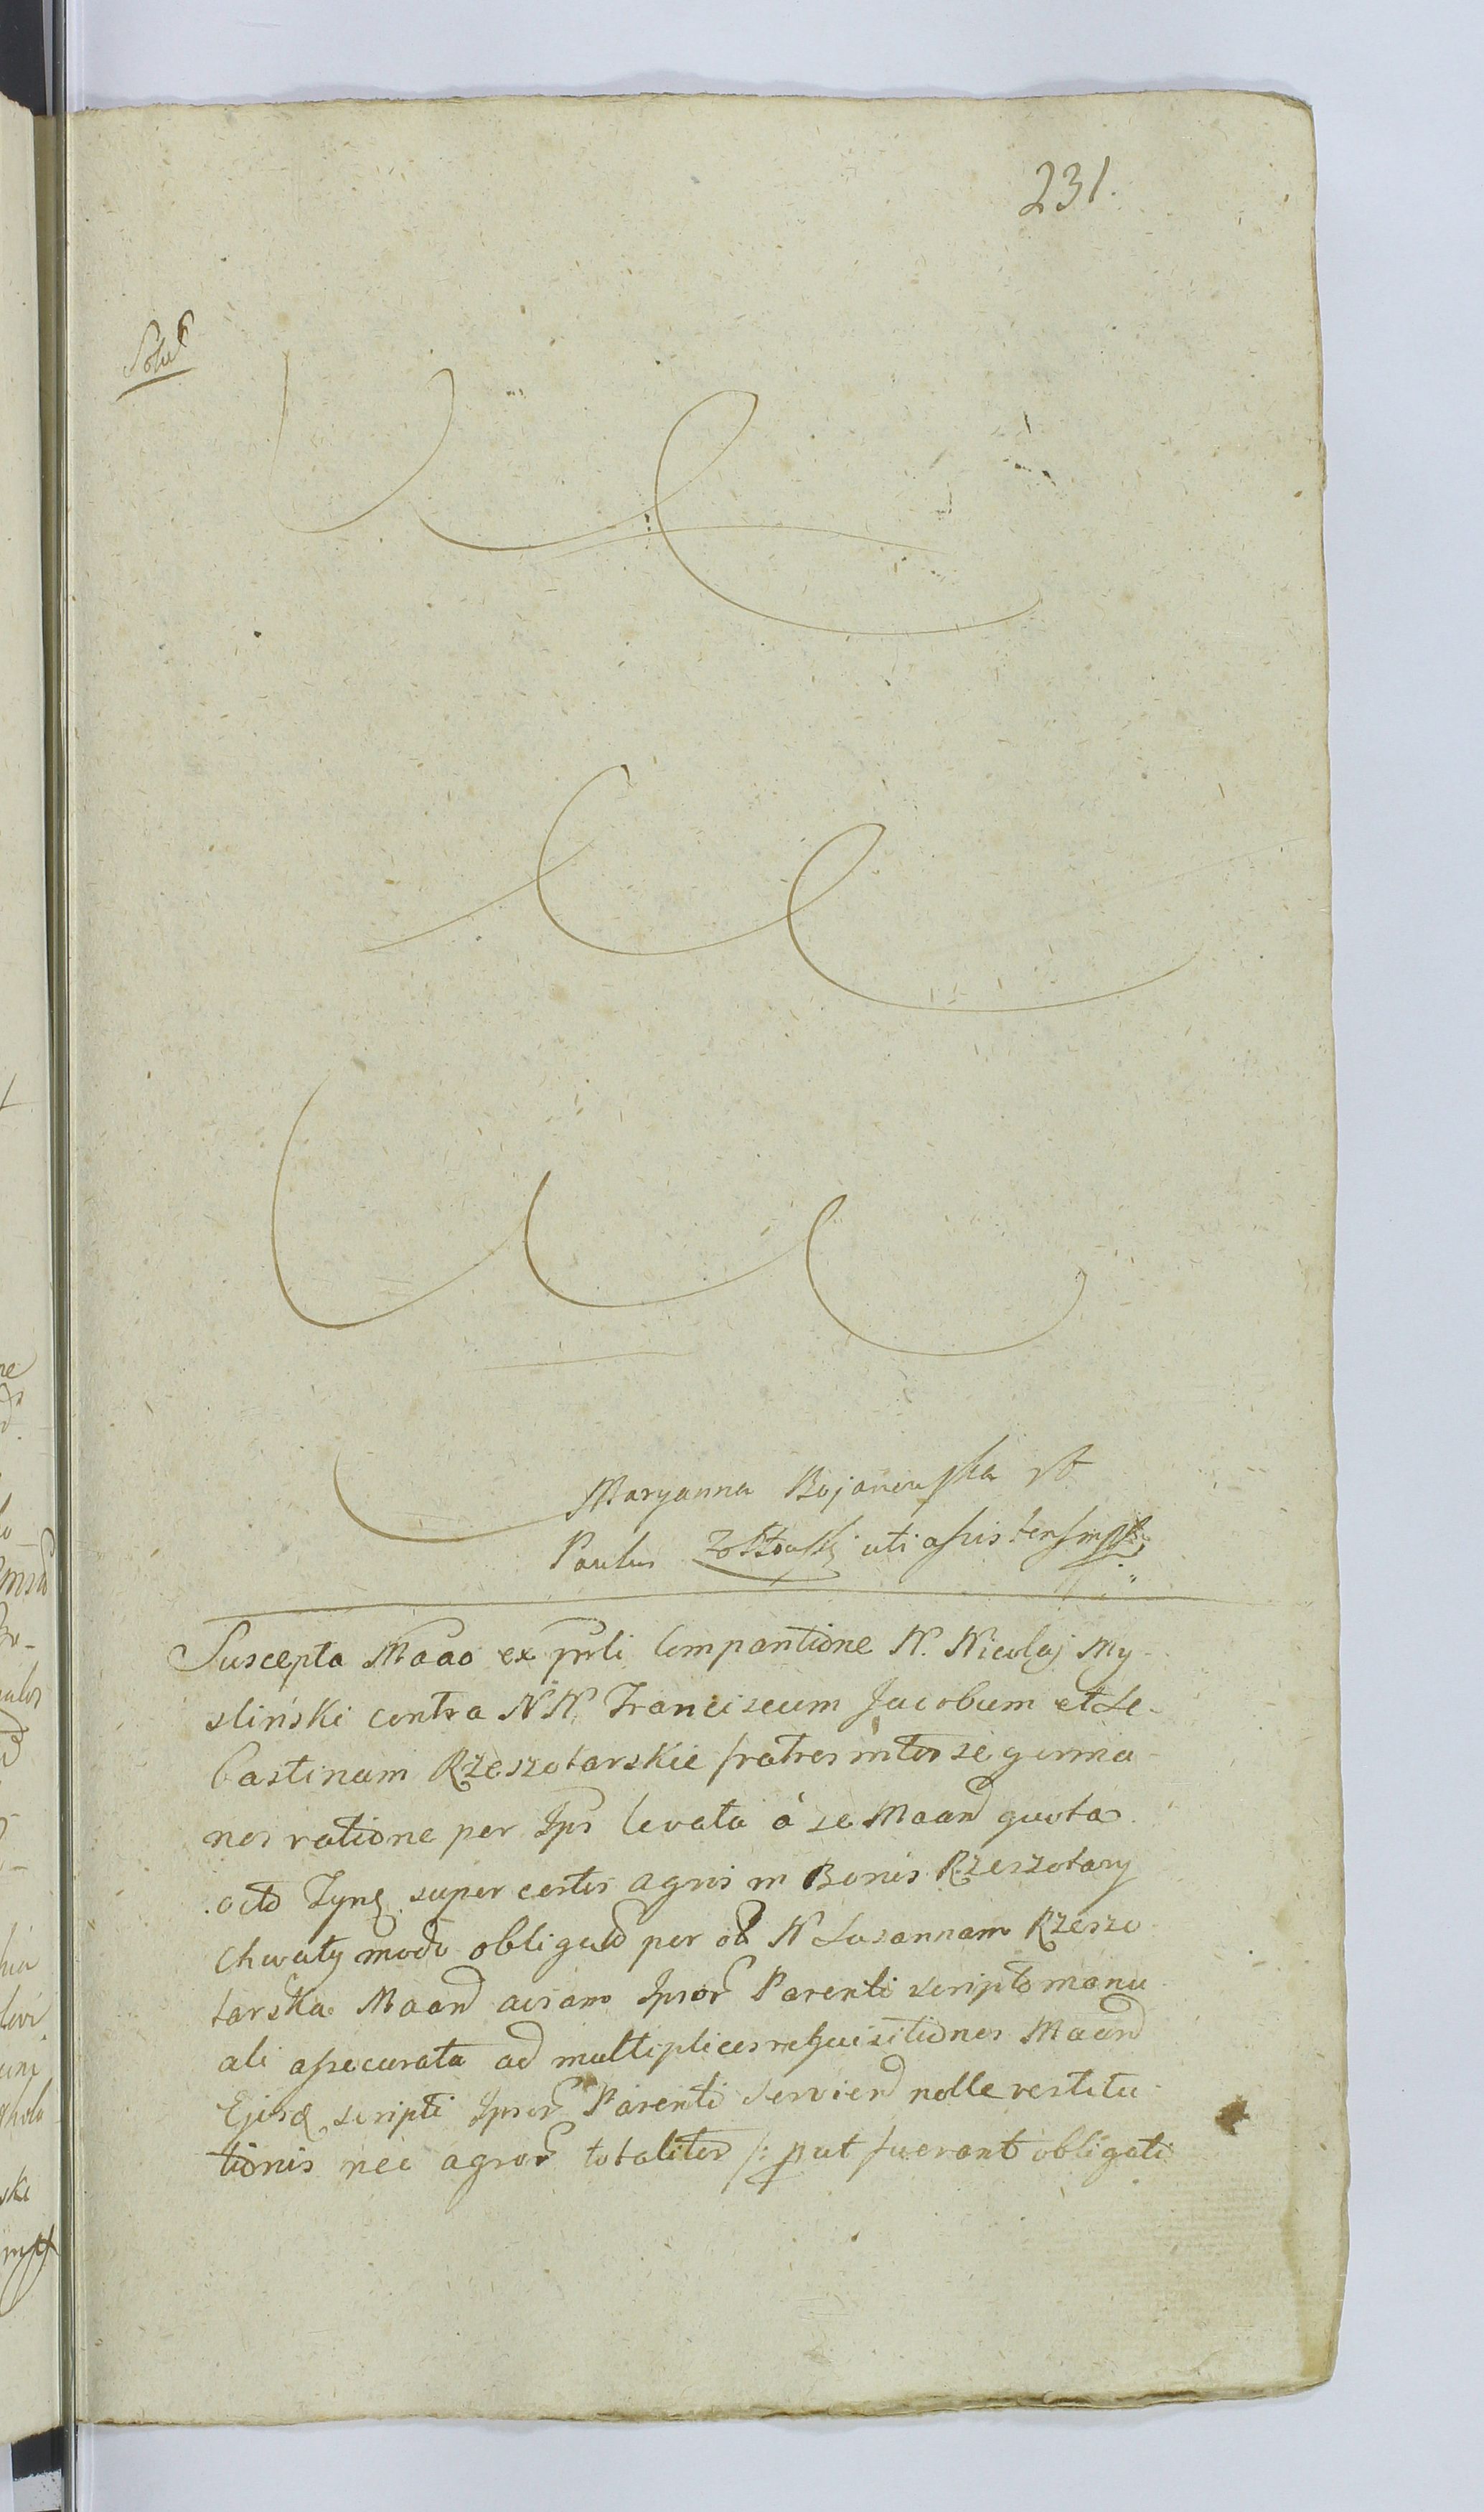 231.
Solut
Maryanna Bojanowska
Paulus uti assistens mpp
Suscepta Maao ex prsti Compantione N. Nicolaj My-
sliński contra NN. Franciscum Jacobum et Se-
bastinum Rzeszotarskie fratres inter se germa-
nos ratione per Ipsos levata à se Maand quota
octo super certis agris in Bonis Rzeszotary
Chwały modo obligatd per N Susannam Rzeszo-
tarska Maand Ipsor Parenti scripto manu
ali assecurata ad multiplices requisitiones Maand
Ejusq scripti Ipsor Parenti serviend nolle restitu-
tionis nec agror totaliter /: put fuerant obligati